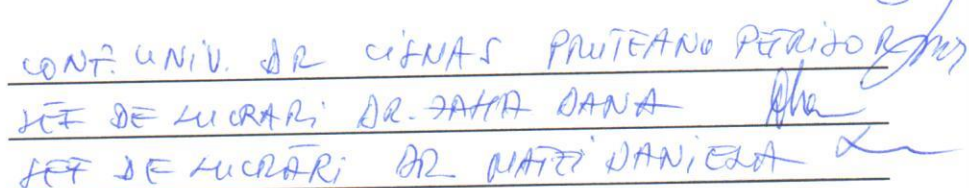 CONF. UNIV. DR CIGNAS PRUTEANU PETRIȘOR
ȘEF DE LUCRARI DR. ZAHA DANA
ȘEF DE LUCRĂRI DR MATEI DANIELA